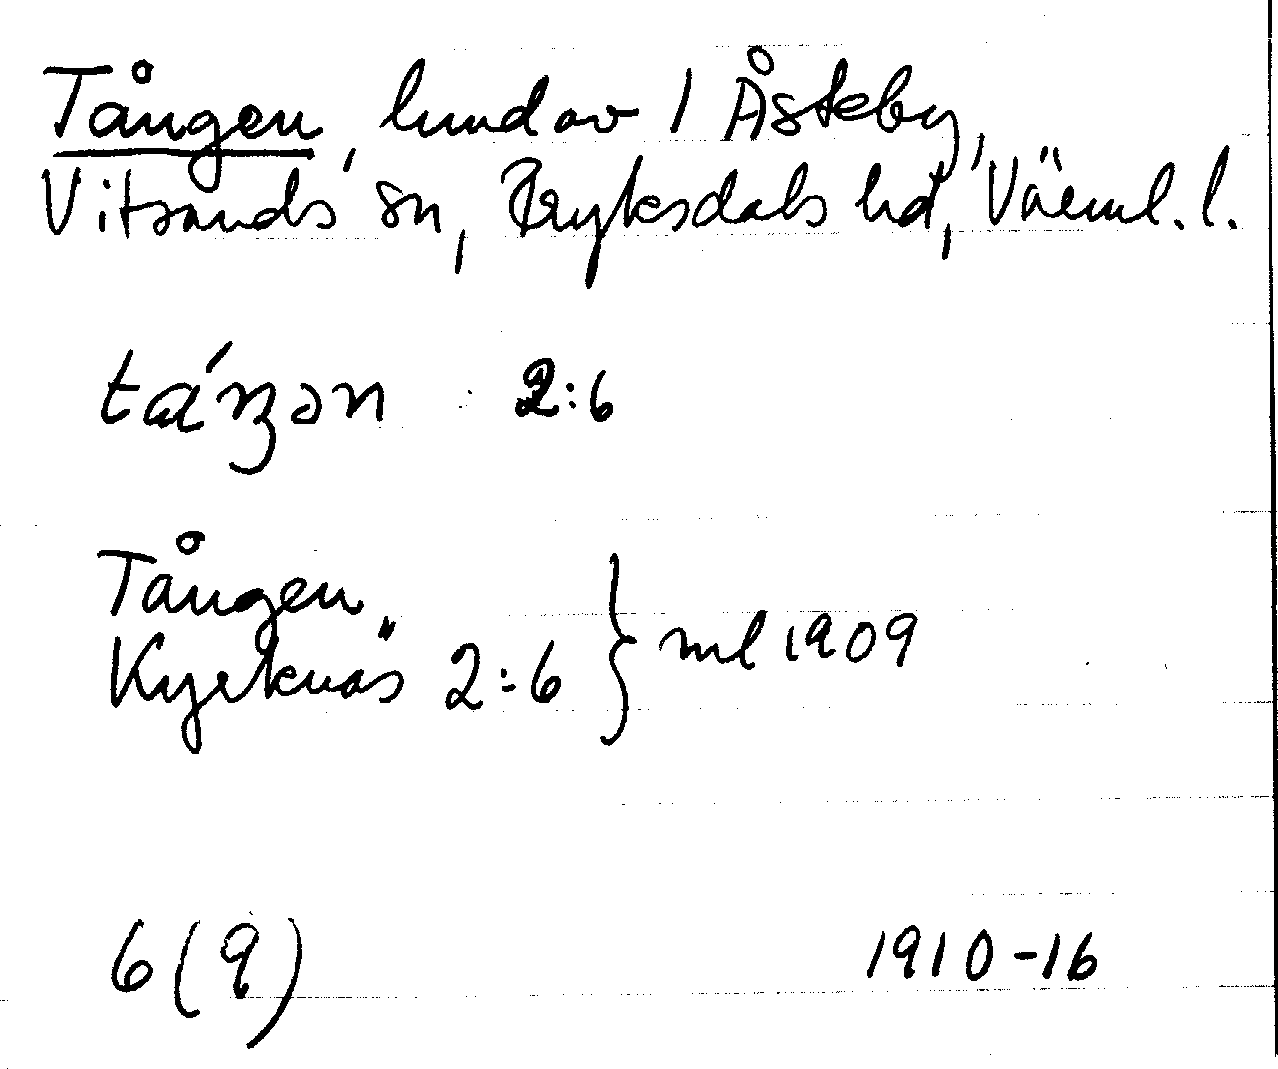 Tången, lund av 1 Åsteby,
Vitsands sn, Fryksdals hd, Värml. l.
táŋən 2:6
Tången
Kyrknäs 2:6 } ml 1909
6(9) 1910-16